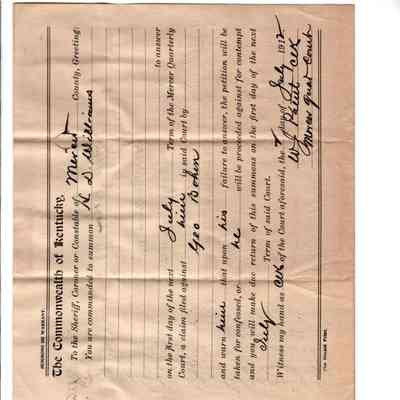 SUMMONS OR WARRANT.
The Commonwealth of Kentucky,
To the Sheriff, Coroner or Constable of Mercer County, Greeting:
You are commanded to summon K. D. Williams
to answer
on the first day of the next July Term of the Mercer Quarterly
Court, a claim filed against him in said Court by
Geo Bohon
and warn him that upon his failure to answer, the petition will be
taken for confessed, or he will be proceeded against for contempt
and you will make due return of this summons on the first day of the next
July Term of said Court.
Witness my hand as Clk of the Court aforesaid, the day of July 1912
W. J. Clk
Mercer Quar Court